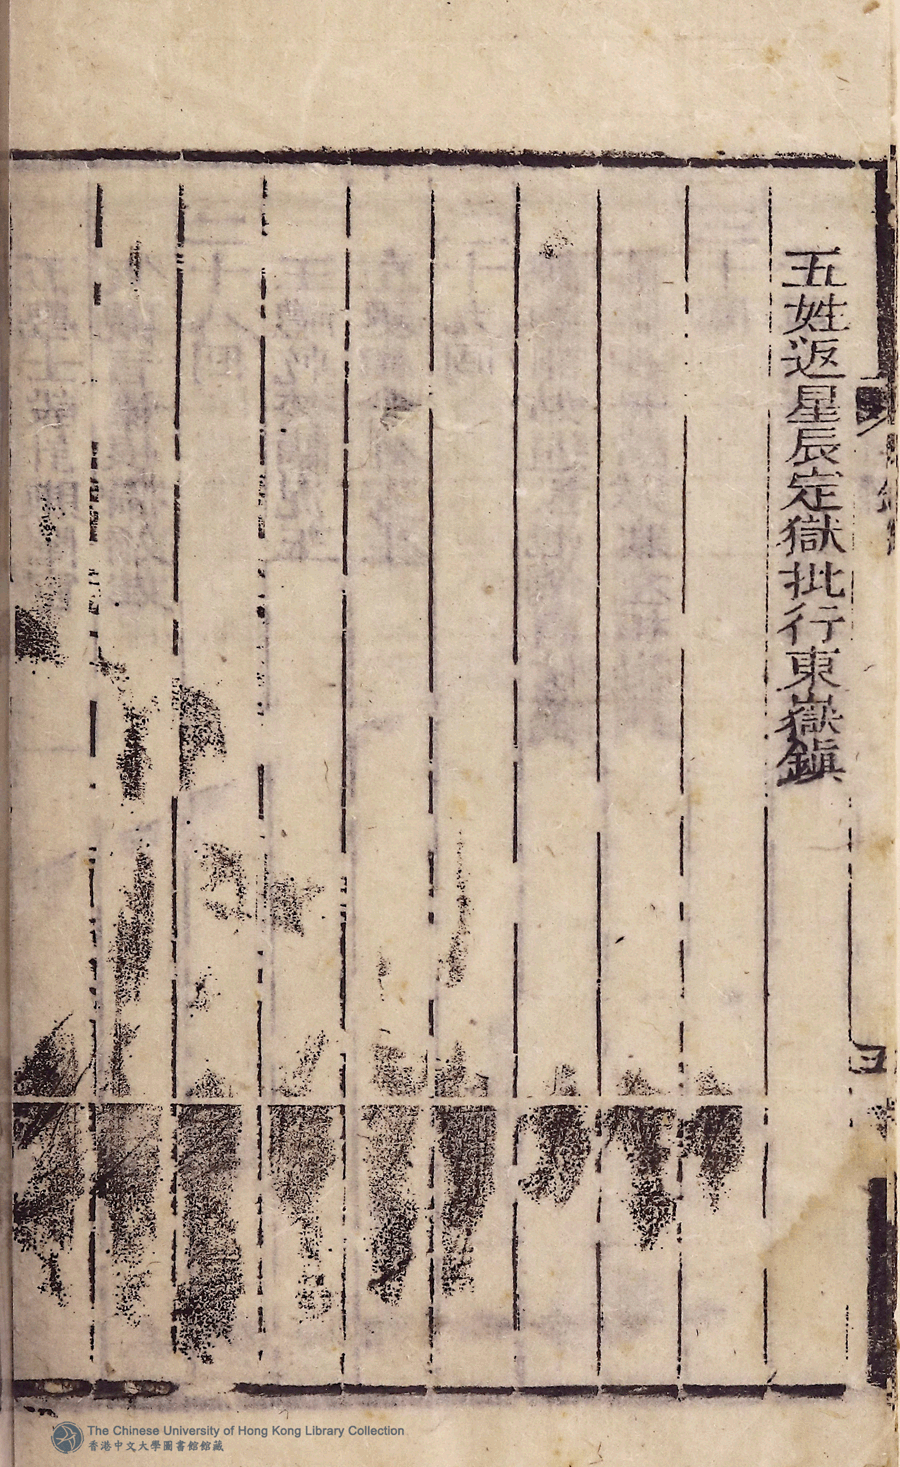 五姓返星辰定獄批行東嶽鎭
The Chinese University of Hong Kong Library Collection
香港中文大學圖書館館藏